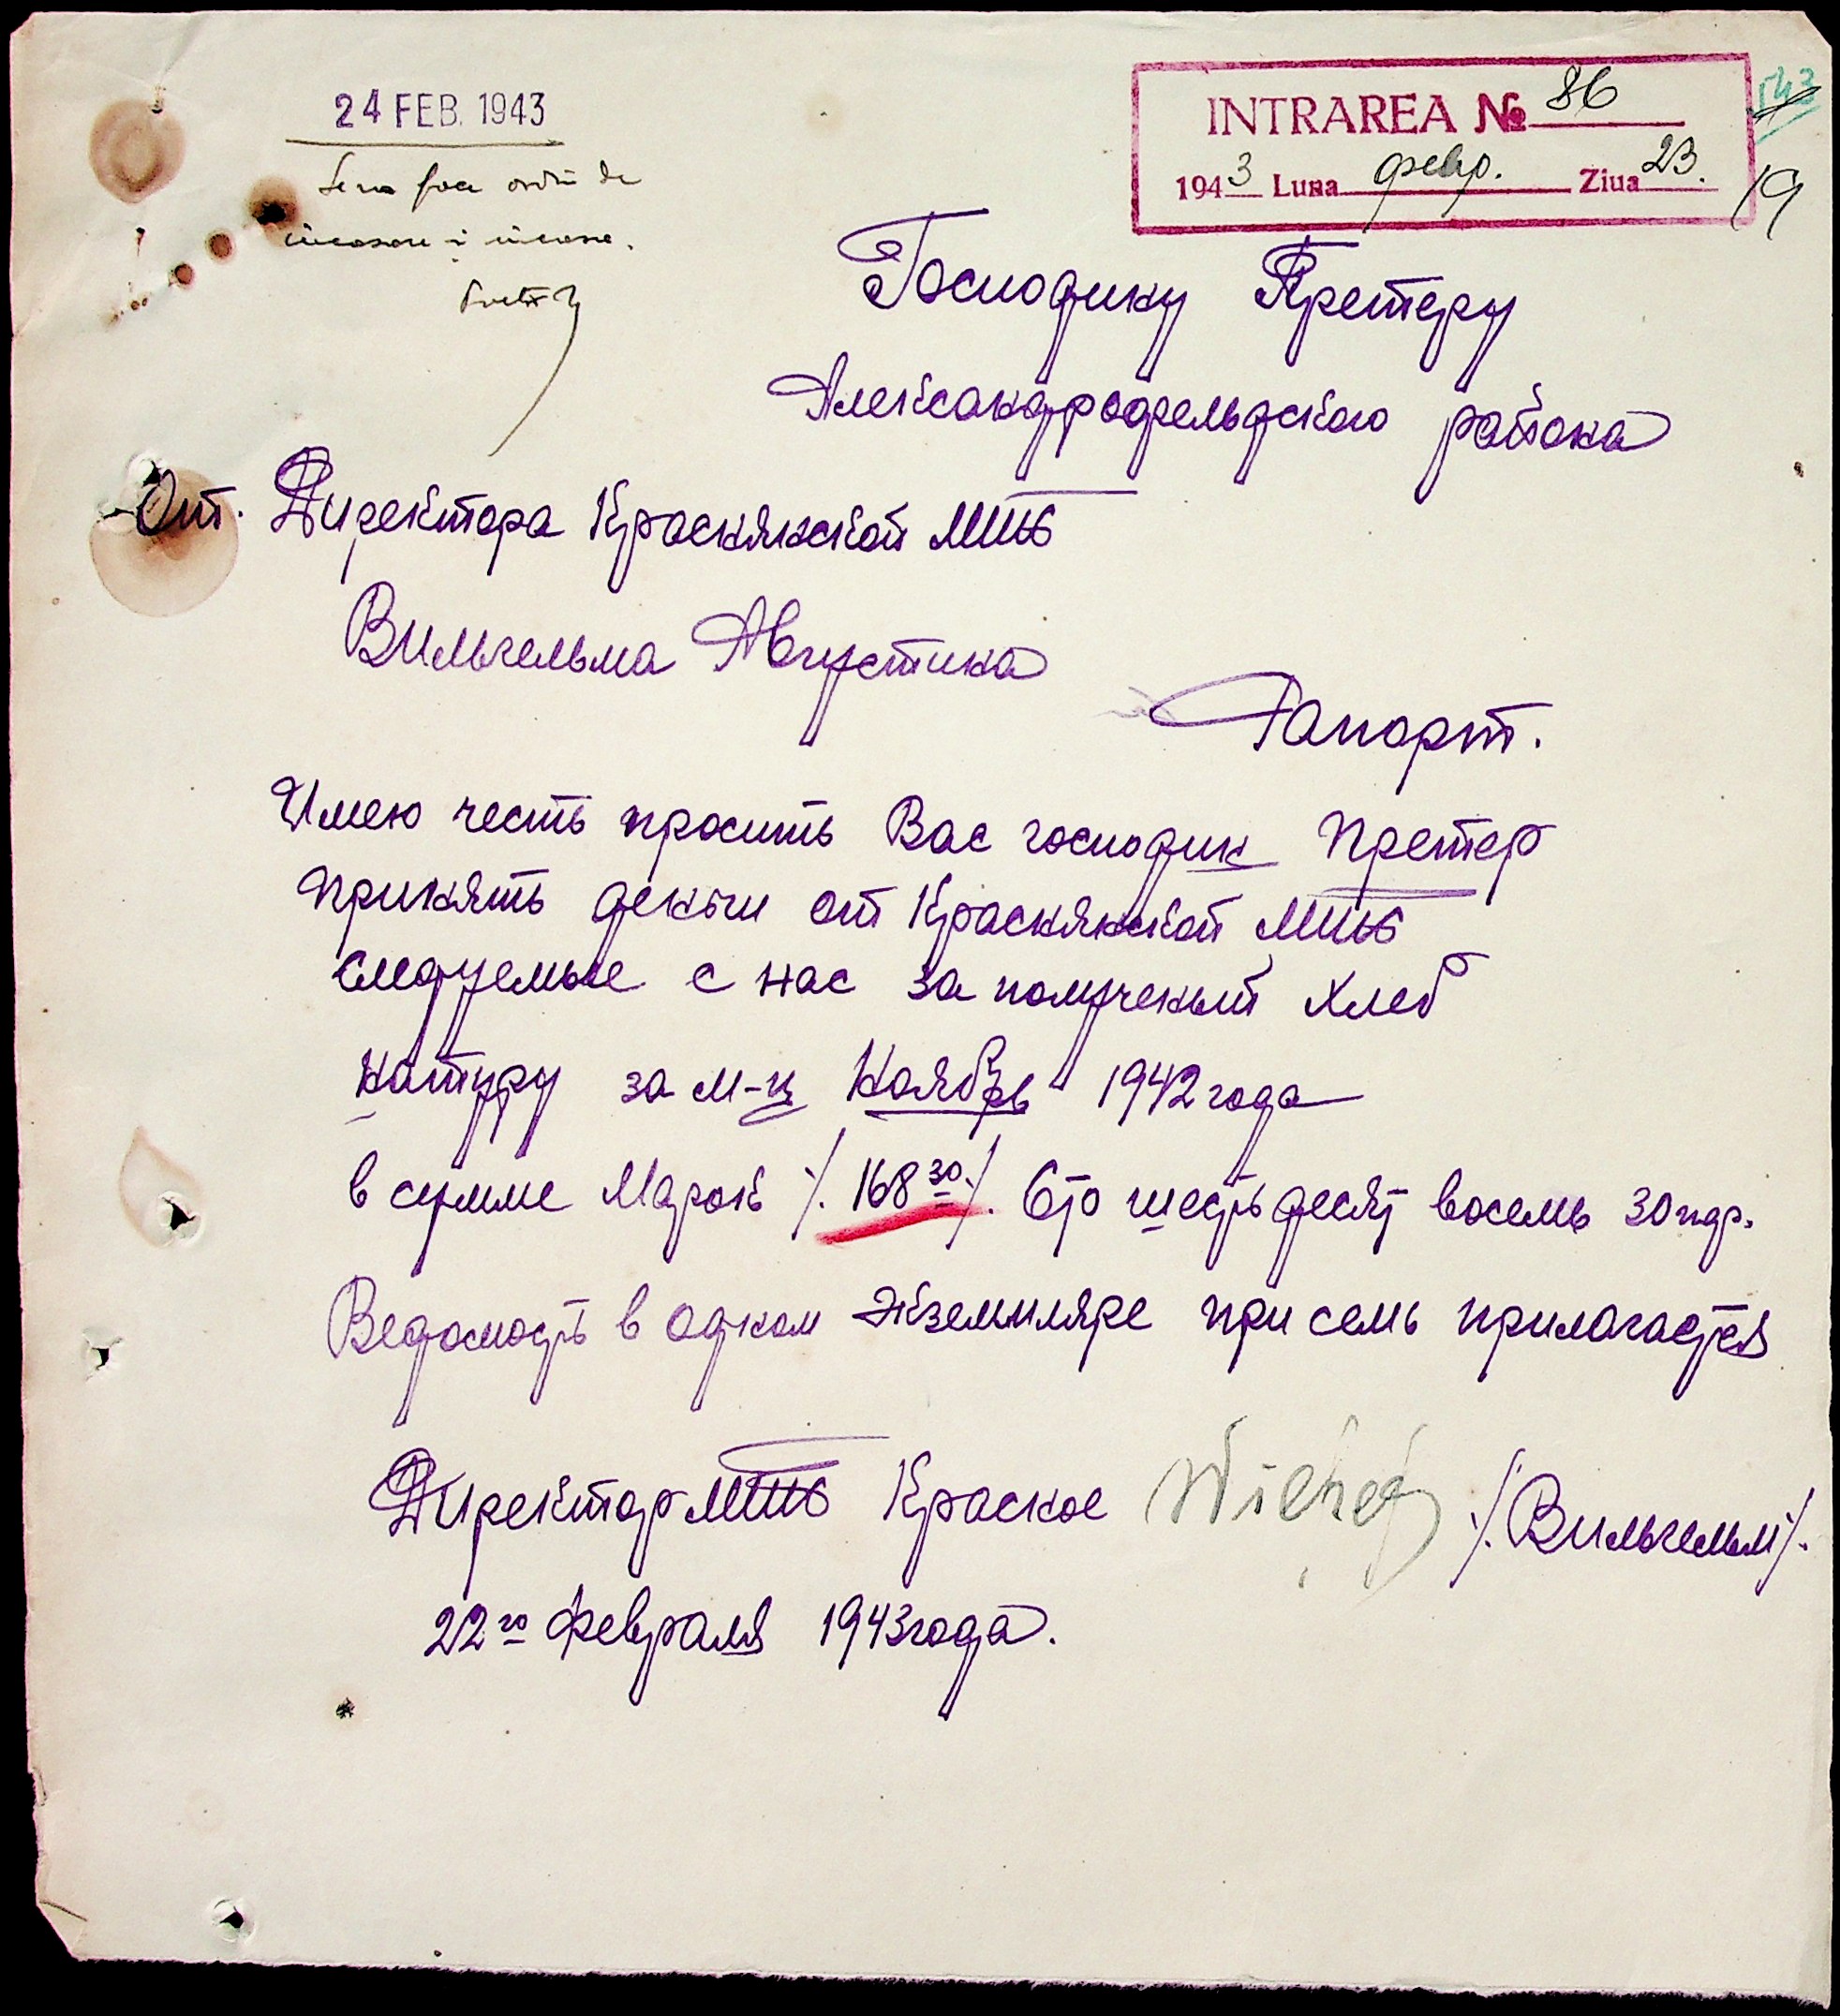 24 FEB. 1943
Se va face ordin de
incasare și incasa.
INTRAREA № 86
1943 Luna февр. Ziua 23.
143
19
Господину Претеру
Александрфельдского района
От. Директора Краснянской МТС
Вильгельма Августина
Рапорт.
Имею честь просить Вас господин Претер
принять деньги от Краснянской МТС
следуемые с нас за полученый хлеб
натуру за м-ц Ноябрь 1942 года
в сумме Марок /. 168 30 /. Сто шестьдесят восемь 30 пф.
Ведомость в одном экземпляре при семь прилагается
Директор МТС Красное /. Вильгельм /.
22го февраля 1943 года.